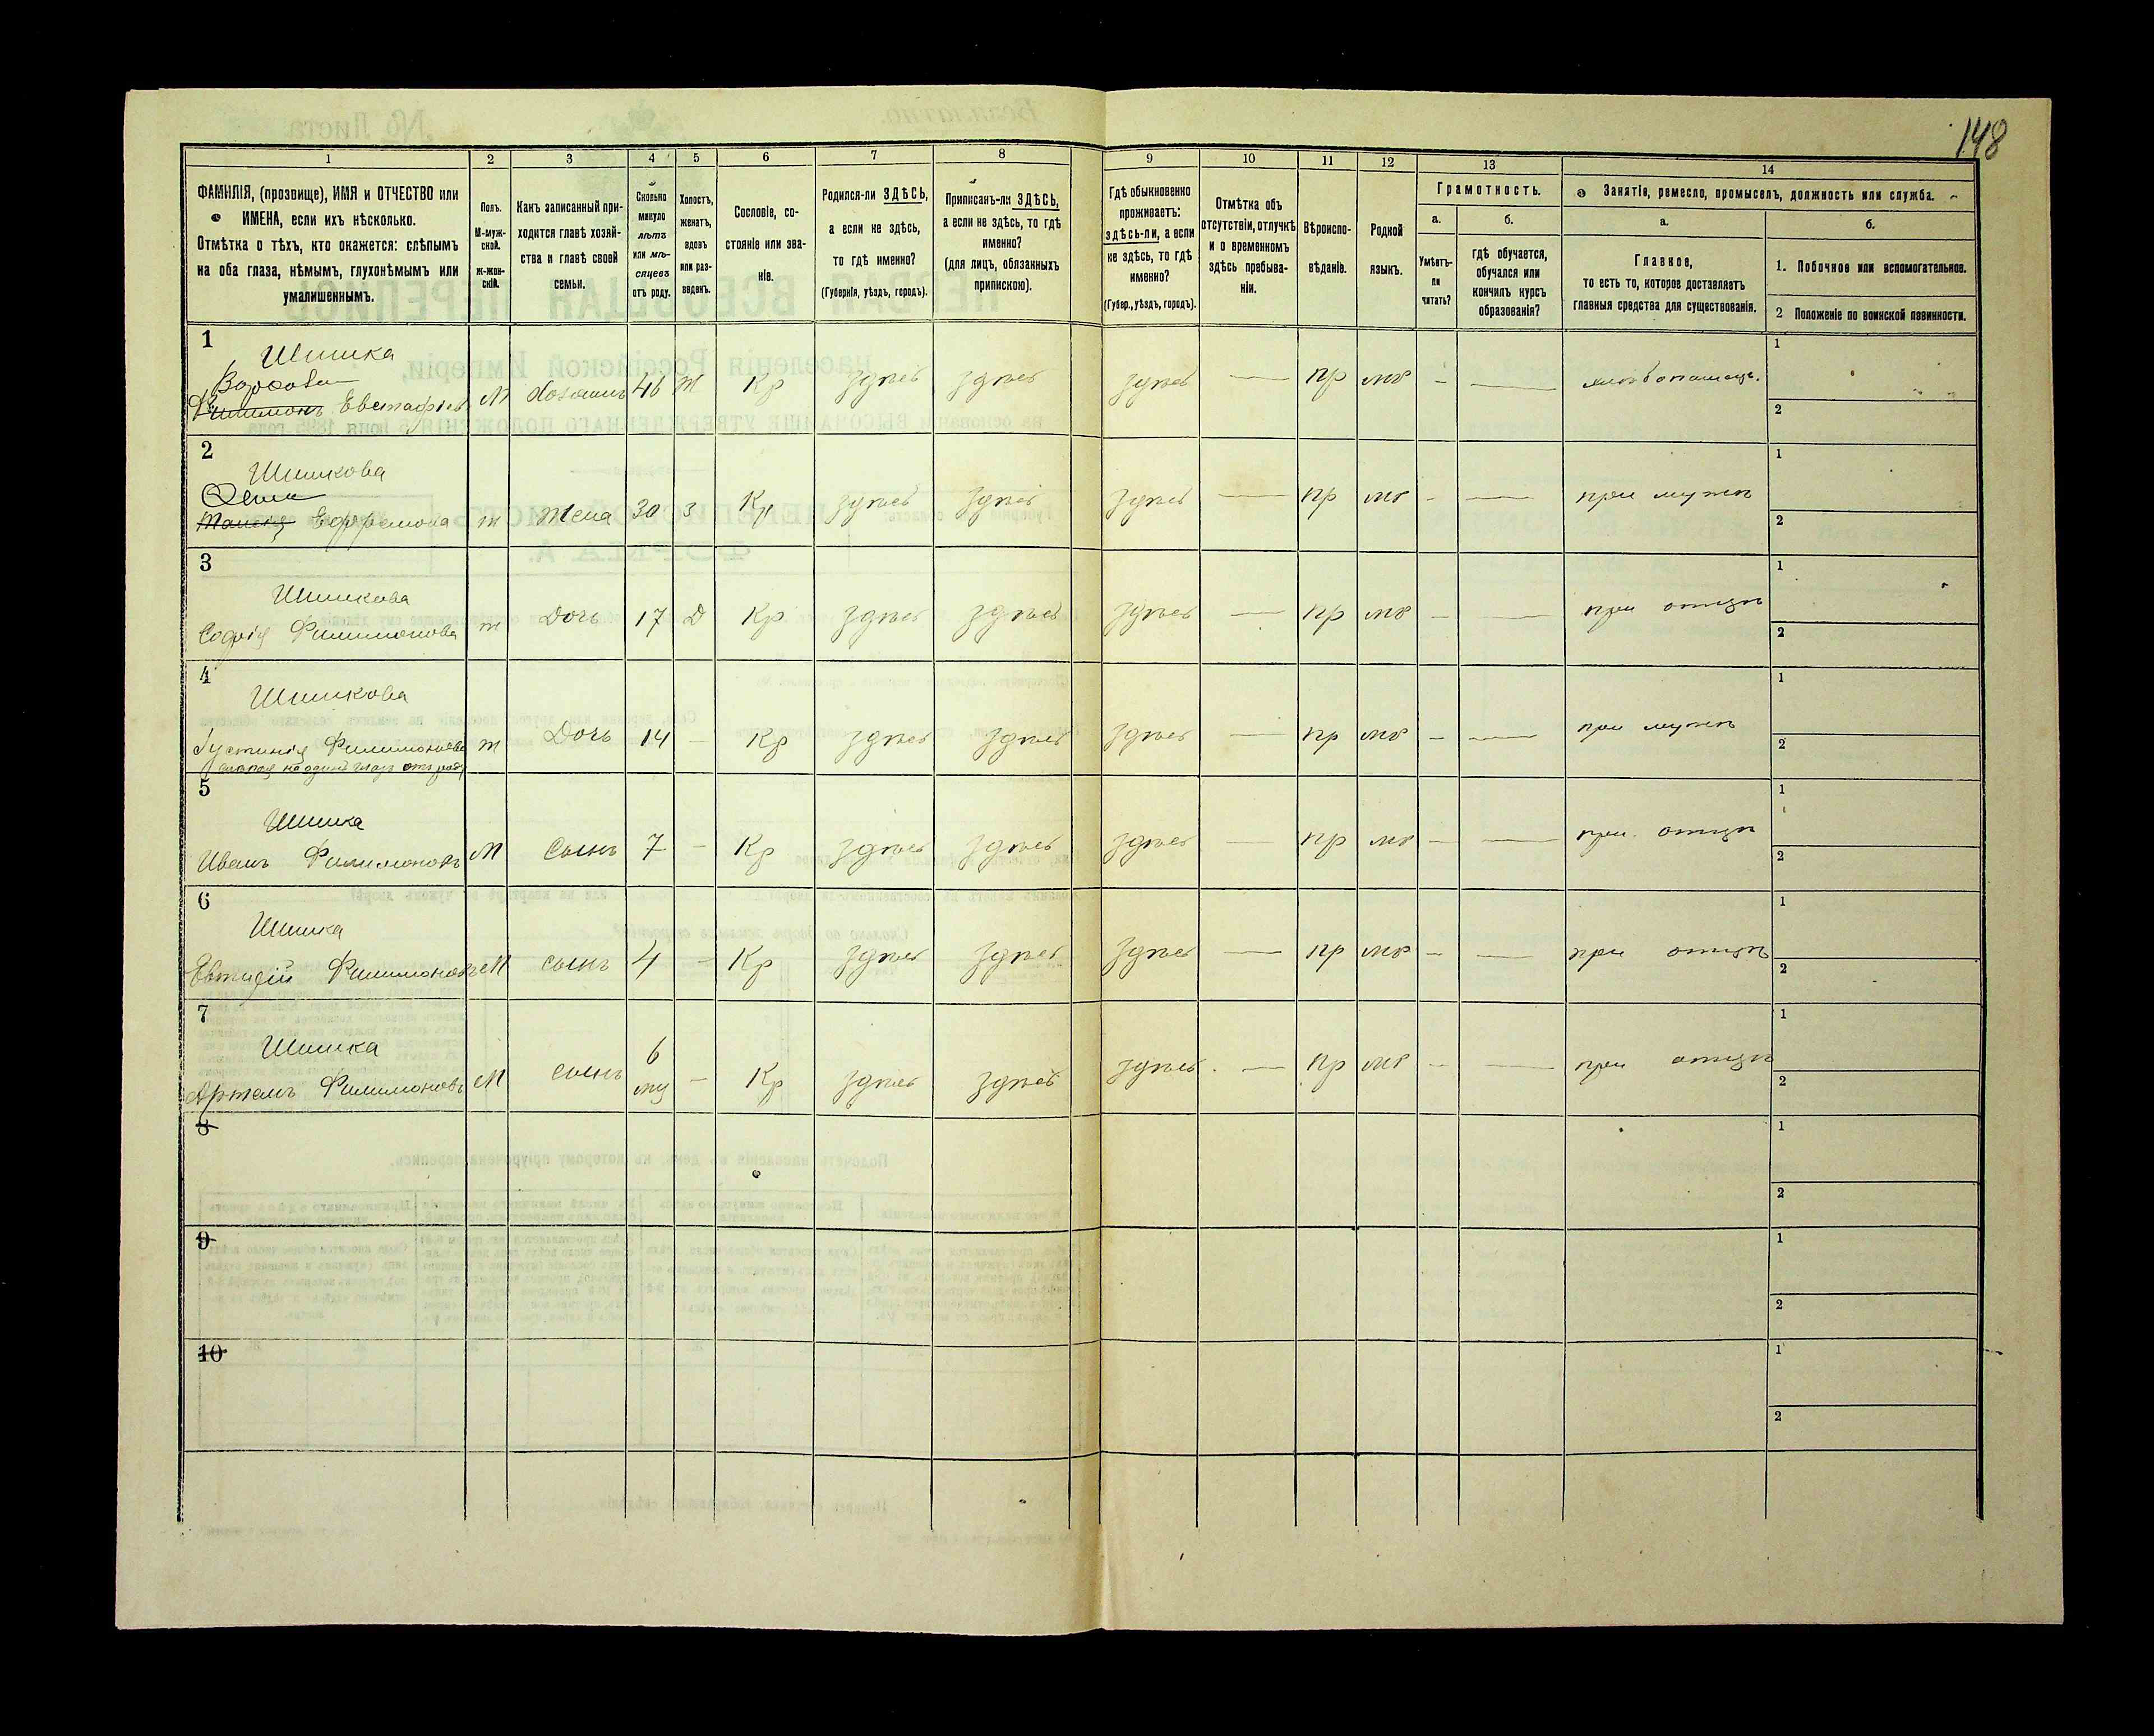 148
1 2 3 4 5 6 7 8 9 10 11 12 13 14
ФАМИЛІЯ, (прозвище), ИМЯ и ОТЧЕСТВО или
ИМЕНА, если ихъ нѣсколько.
Отмѣтка о тѣхъ, кто окажется: слѣпымъ
на оба глаза, нѣмымъ, глухонѣмымъ или
умалишеннымъ.
Полъ.
М-муж-
ской.
ж-жен-
скій.
Какъ записанный при-
ходится главѣ хозяй-
ства и главѣ своей
семьи.
Сколько
минуло
лѣтъ
или мѣ-
сяцевъ
отъ роду.
Холостъ,
женатъ,
вдовъ
или раз-
веденъ.
Сословіе, со-
стояніе или зва-
ніе.
Родился-ли ЗДѢСЬ,
а если не здѣсь,
то гдѣ именно?
(Губернія, уѣздъ, городъ).
Приписанъ-ли ЗДѢСЬ,
а если не здѣсь, то гдѣ
именно?
(для лицъ, обязанныхъ
припискою).
Гдѣ обыкновенно
проживаетъ:
здѣсь-ли, а если
не здѣсь, то гдѣ
именно?
(Губер., уѣздъ, городъ).
Отмѣтка объ
отсутствіи, отлучкѣ
и о временномъ
здѣсь пребыва-
ніи.
Вѣроиспо-
вѣданіе.
Родной
языкъ.
Грамотность.
а.
Умѣетъ-
ли
читать?
б.
гдѣ обучается,
обучался или
кончилъ курсъ
образованія?
Занятіе, ремесло, промыселъ, должность или служба.
а.
Главное,
то есть то, которое доставляетъ
главныя средства для существованія.
б.
1. Побочное или вспомогательное.
2 Положеніе по воинской повинности.
1
Шишка
Евстафіевъ М Хозяинъ 46 Ж Кр здѣсь здѣсь здѣсь — пр мр - —
1
2
2
Шишкова
Ефремова ж Жена 30 З Кр здѣсь здѣсь здѣсь — пр мр - — при мужѣ
1
2
3
Шишкова
Софія Филимонова ж Дочь 17 Д Кр здѣсь здѣсь здѣсь — пр мр - — при отцѣ
1
2
4
Шишкова
Іустинія Филимонова ж Дочь 14 - Кр здѣсь здѣсь здѣсь — пр мр - — при мужѣ
слѣпая на одинъ глазъ отъ роду
1
2
5
Шишка
Иванъ Филимоновъ М Сынъ 7 - Кр здѣсь здѣсь здѣсь — пр мр - — при отцѣ
1
2
6
Шишка
Филимоновъ М сынъ 4 - Кр здѣсь здѣсь здѣсь — пр мр - — при отцѣ
1
2
7
Шишка
Артемъ Филимоновъ М сынъ 6 мц - Кр здѣсь здѣсь здѣсь — пр мр - — при отцѣ
1
2
8
1
2
9
1
2
10
1
2